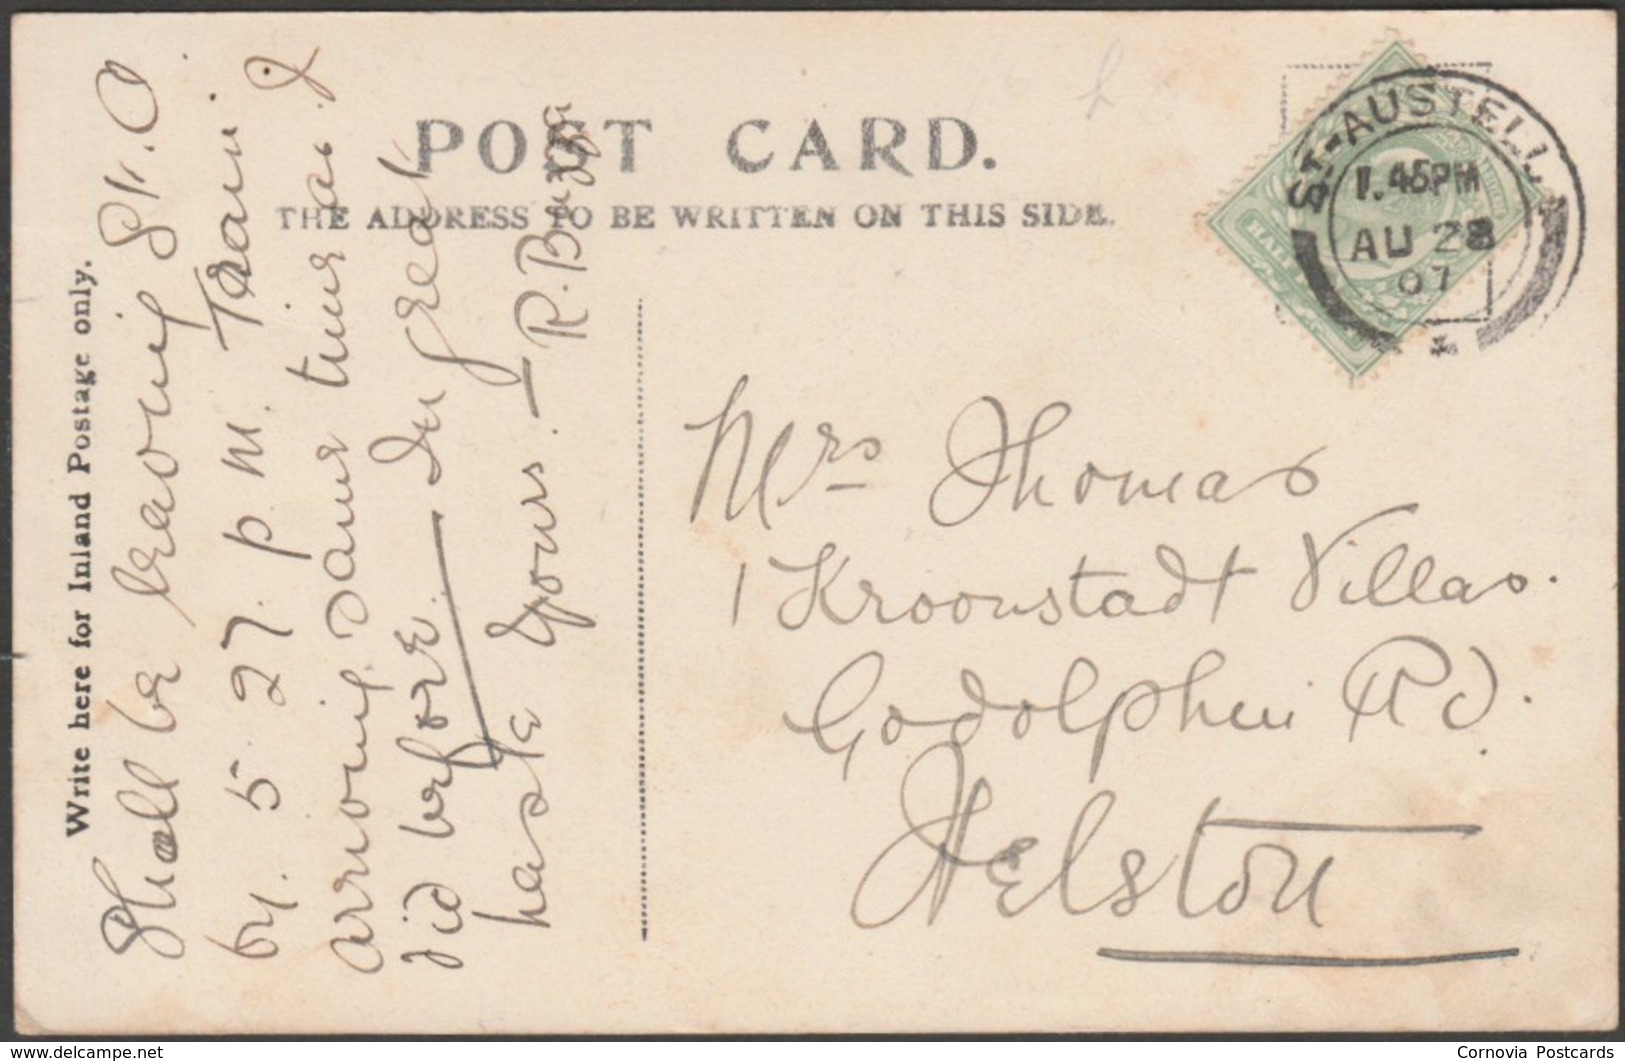 POST CARD.
THE ADDRESS TO BE WRITTEN ON THIS SIDE.
Write here for Inland Postage only.
Shall be leaving St. A
by. 5. 27. p. m. Train.
arriving same time as I
did before. In great
haste Yours. — R. Bugg
ST. AUSTELL
1.45PM
AU 28
07
HALF
Mrs Thomas
1 Kroonstadt Villas.
Godolphin Rd.
Helston
www.delcampe.net
Cornovia Postcards